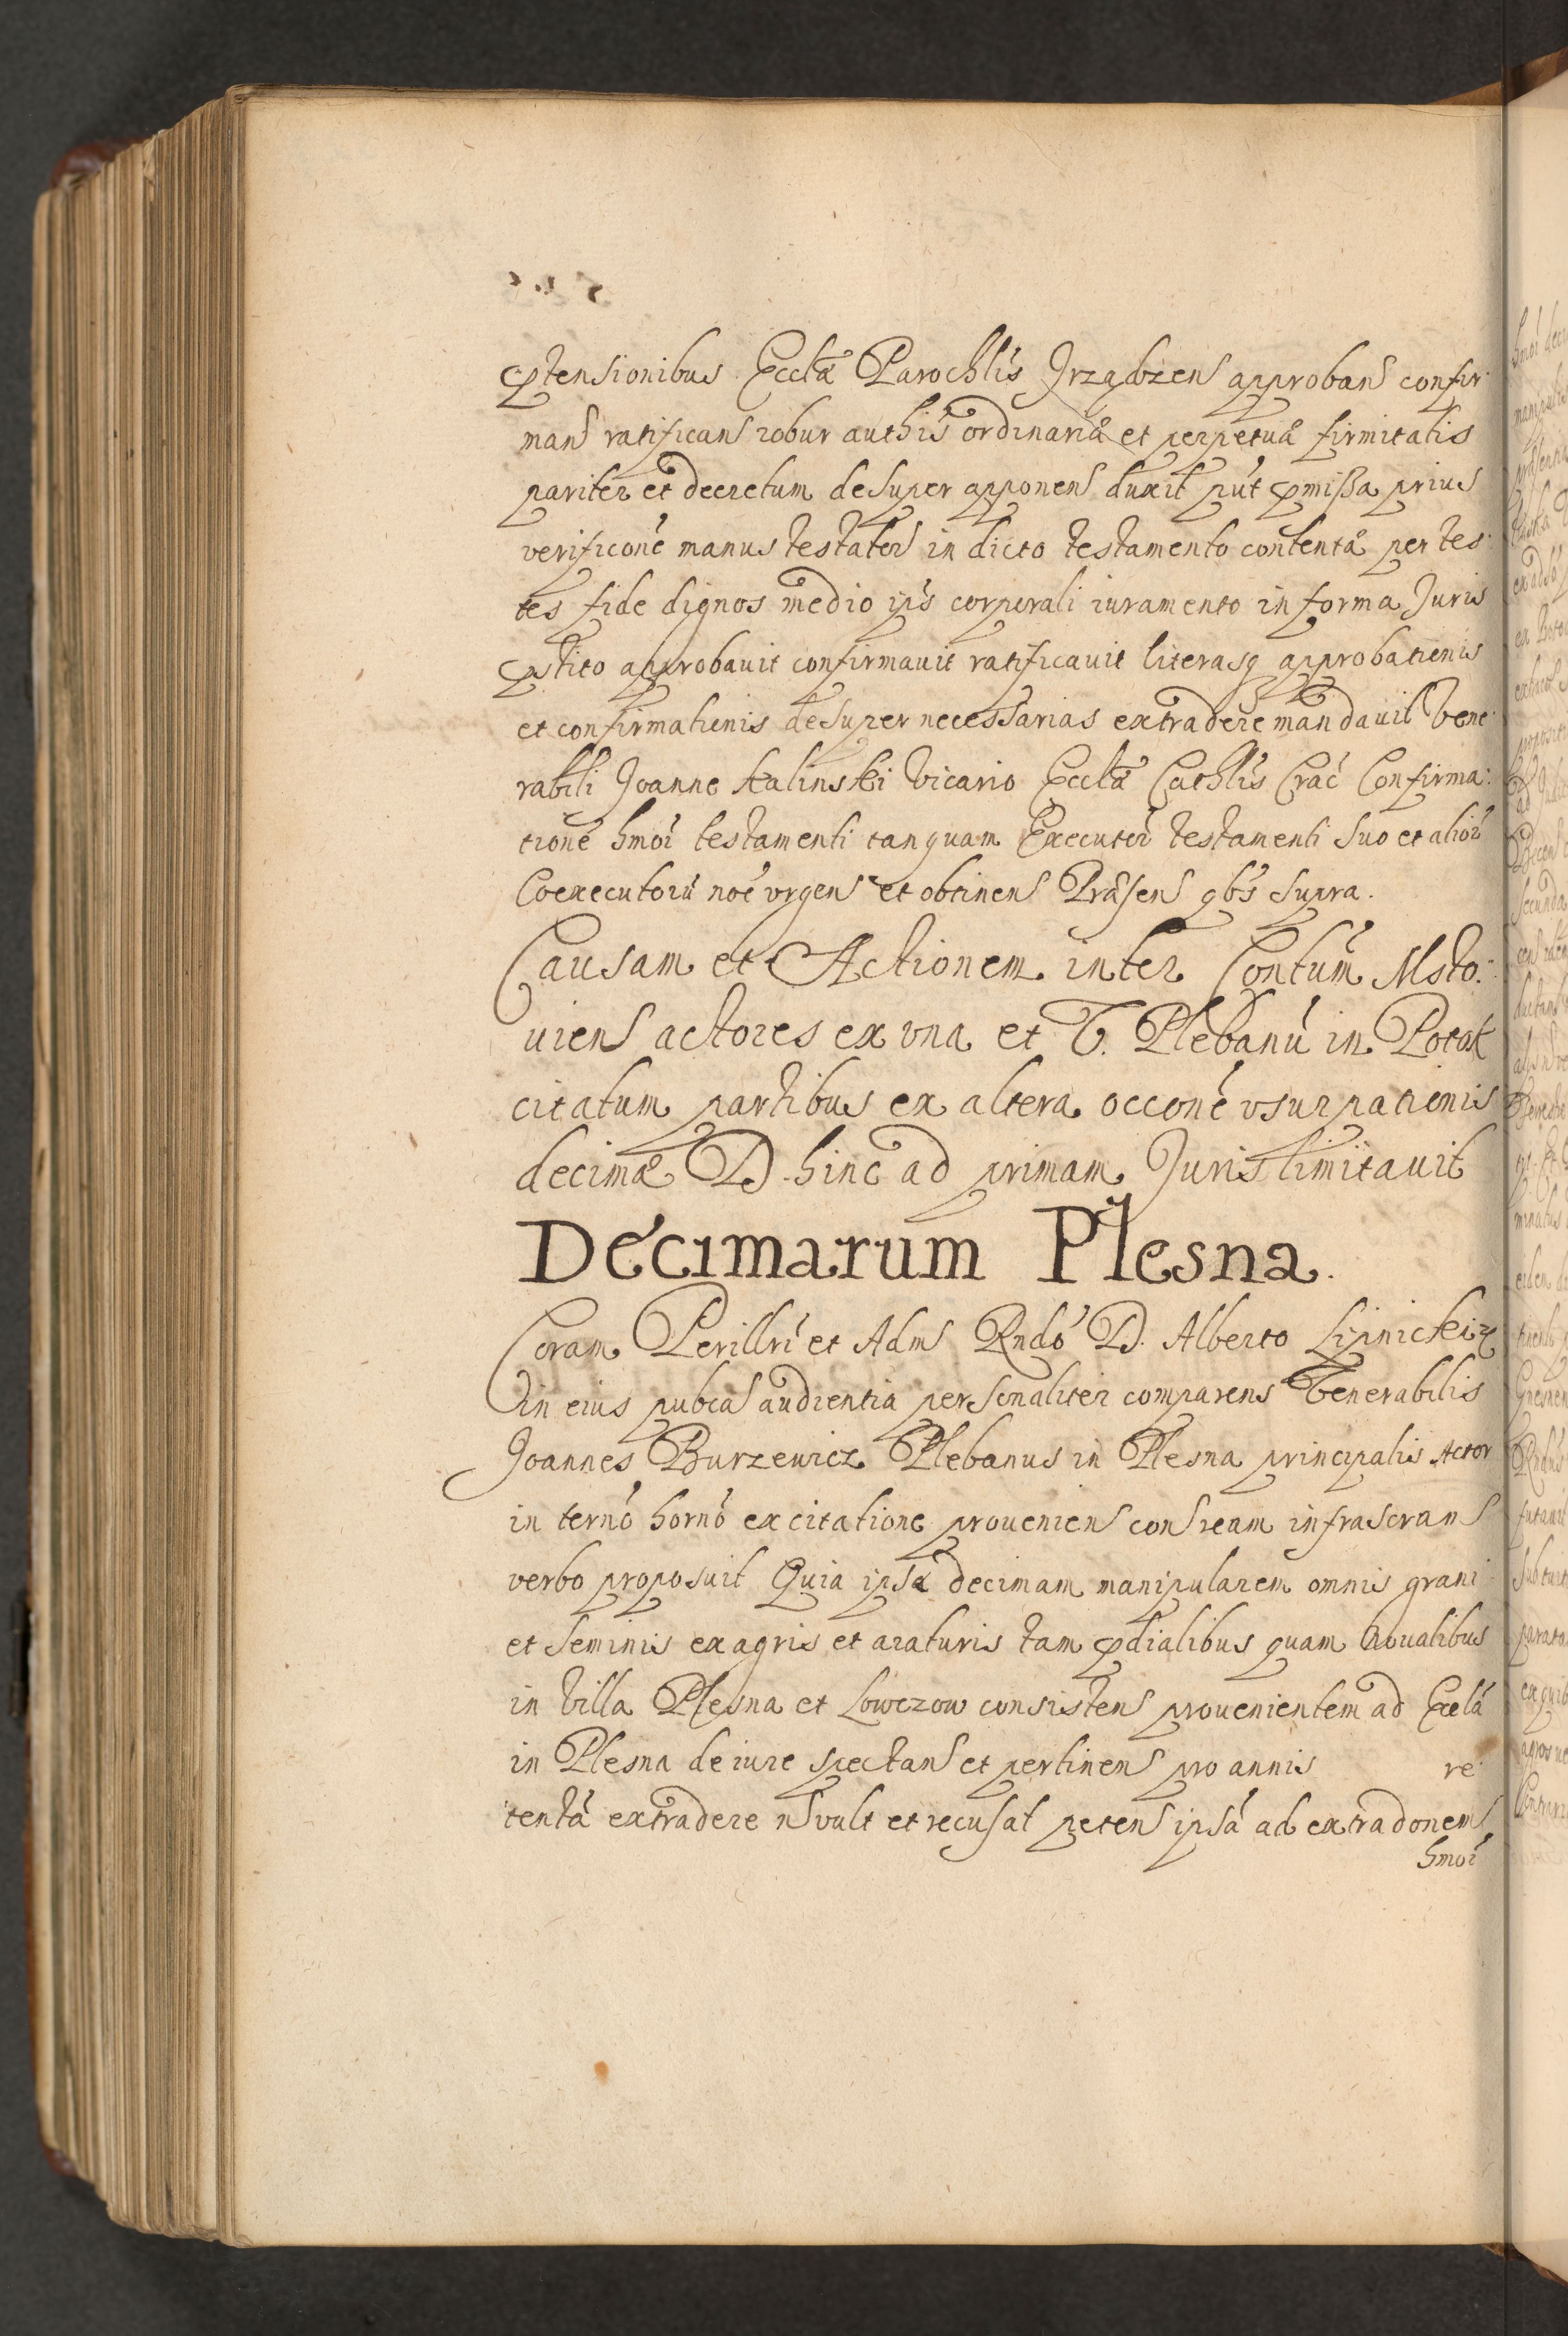 ptensionibus Ecclæ Parochlis Jrządzen approbans confir
mans ratificans robur authis ordinariæ et perpetuæ firmitatis
pariter et decretum desuper apponens duxit put pmißa prius
verificone manus testatoris in dicto testamento contenta per tes
tes fide dignos medio ips corporali iuramento in forma Juris
pstito approbavit confirmauit ratificauit literasq approbationis
et confirmationis desuper necessarias extradere mandauit Vene
rabili Joanne Skalinski Vicario Ecclæ Cathlis Crac Confirma:
tione hmoi testamenti tanquam Executor testamenti suo et alior
Coexecutorū noe vrgens et obtinens Præsens qbs supra.
Causam et Actionem inter Contum Msto:
uiens actores ex vna et V. Plebanū in Potok
citatum partibus ex altera occone vsurpationis
decimæ D. hinc ad primam Juris limitauit
Decimarum Plesna.
Coram Perillri et Adm Rndo D. Alberto Lipnicki
in eius pubca audientia personaliter comparens Venerabilis
Joannes Burzewicz Plebanus in Plesna principalis Actor
in terno horno ex citatione proueniens cons ream infrascran
verbo proposuit Quia ipsa decimam manipularem omnis grani
et seminis ex agris et araturis tam pdialibus quam
in Villa Plesna et Lowczow consistens prouenientem ad Ecclā
in Plesna de iure spectans et pertinens pro annis re
tentā extradere n vult et recusat petens ipsā ad extradonem
hmoi